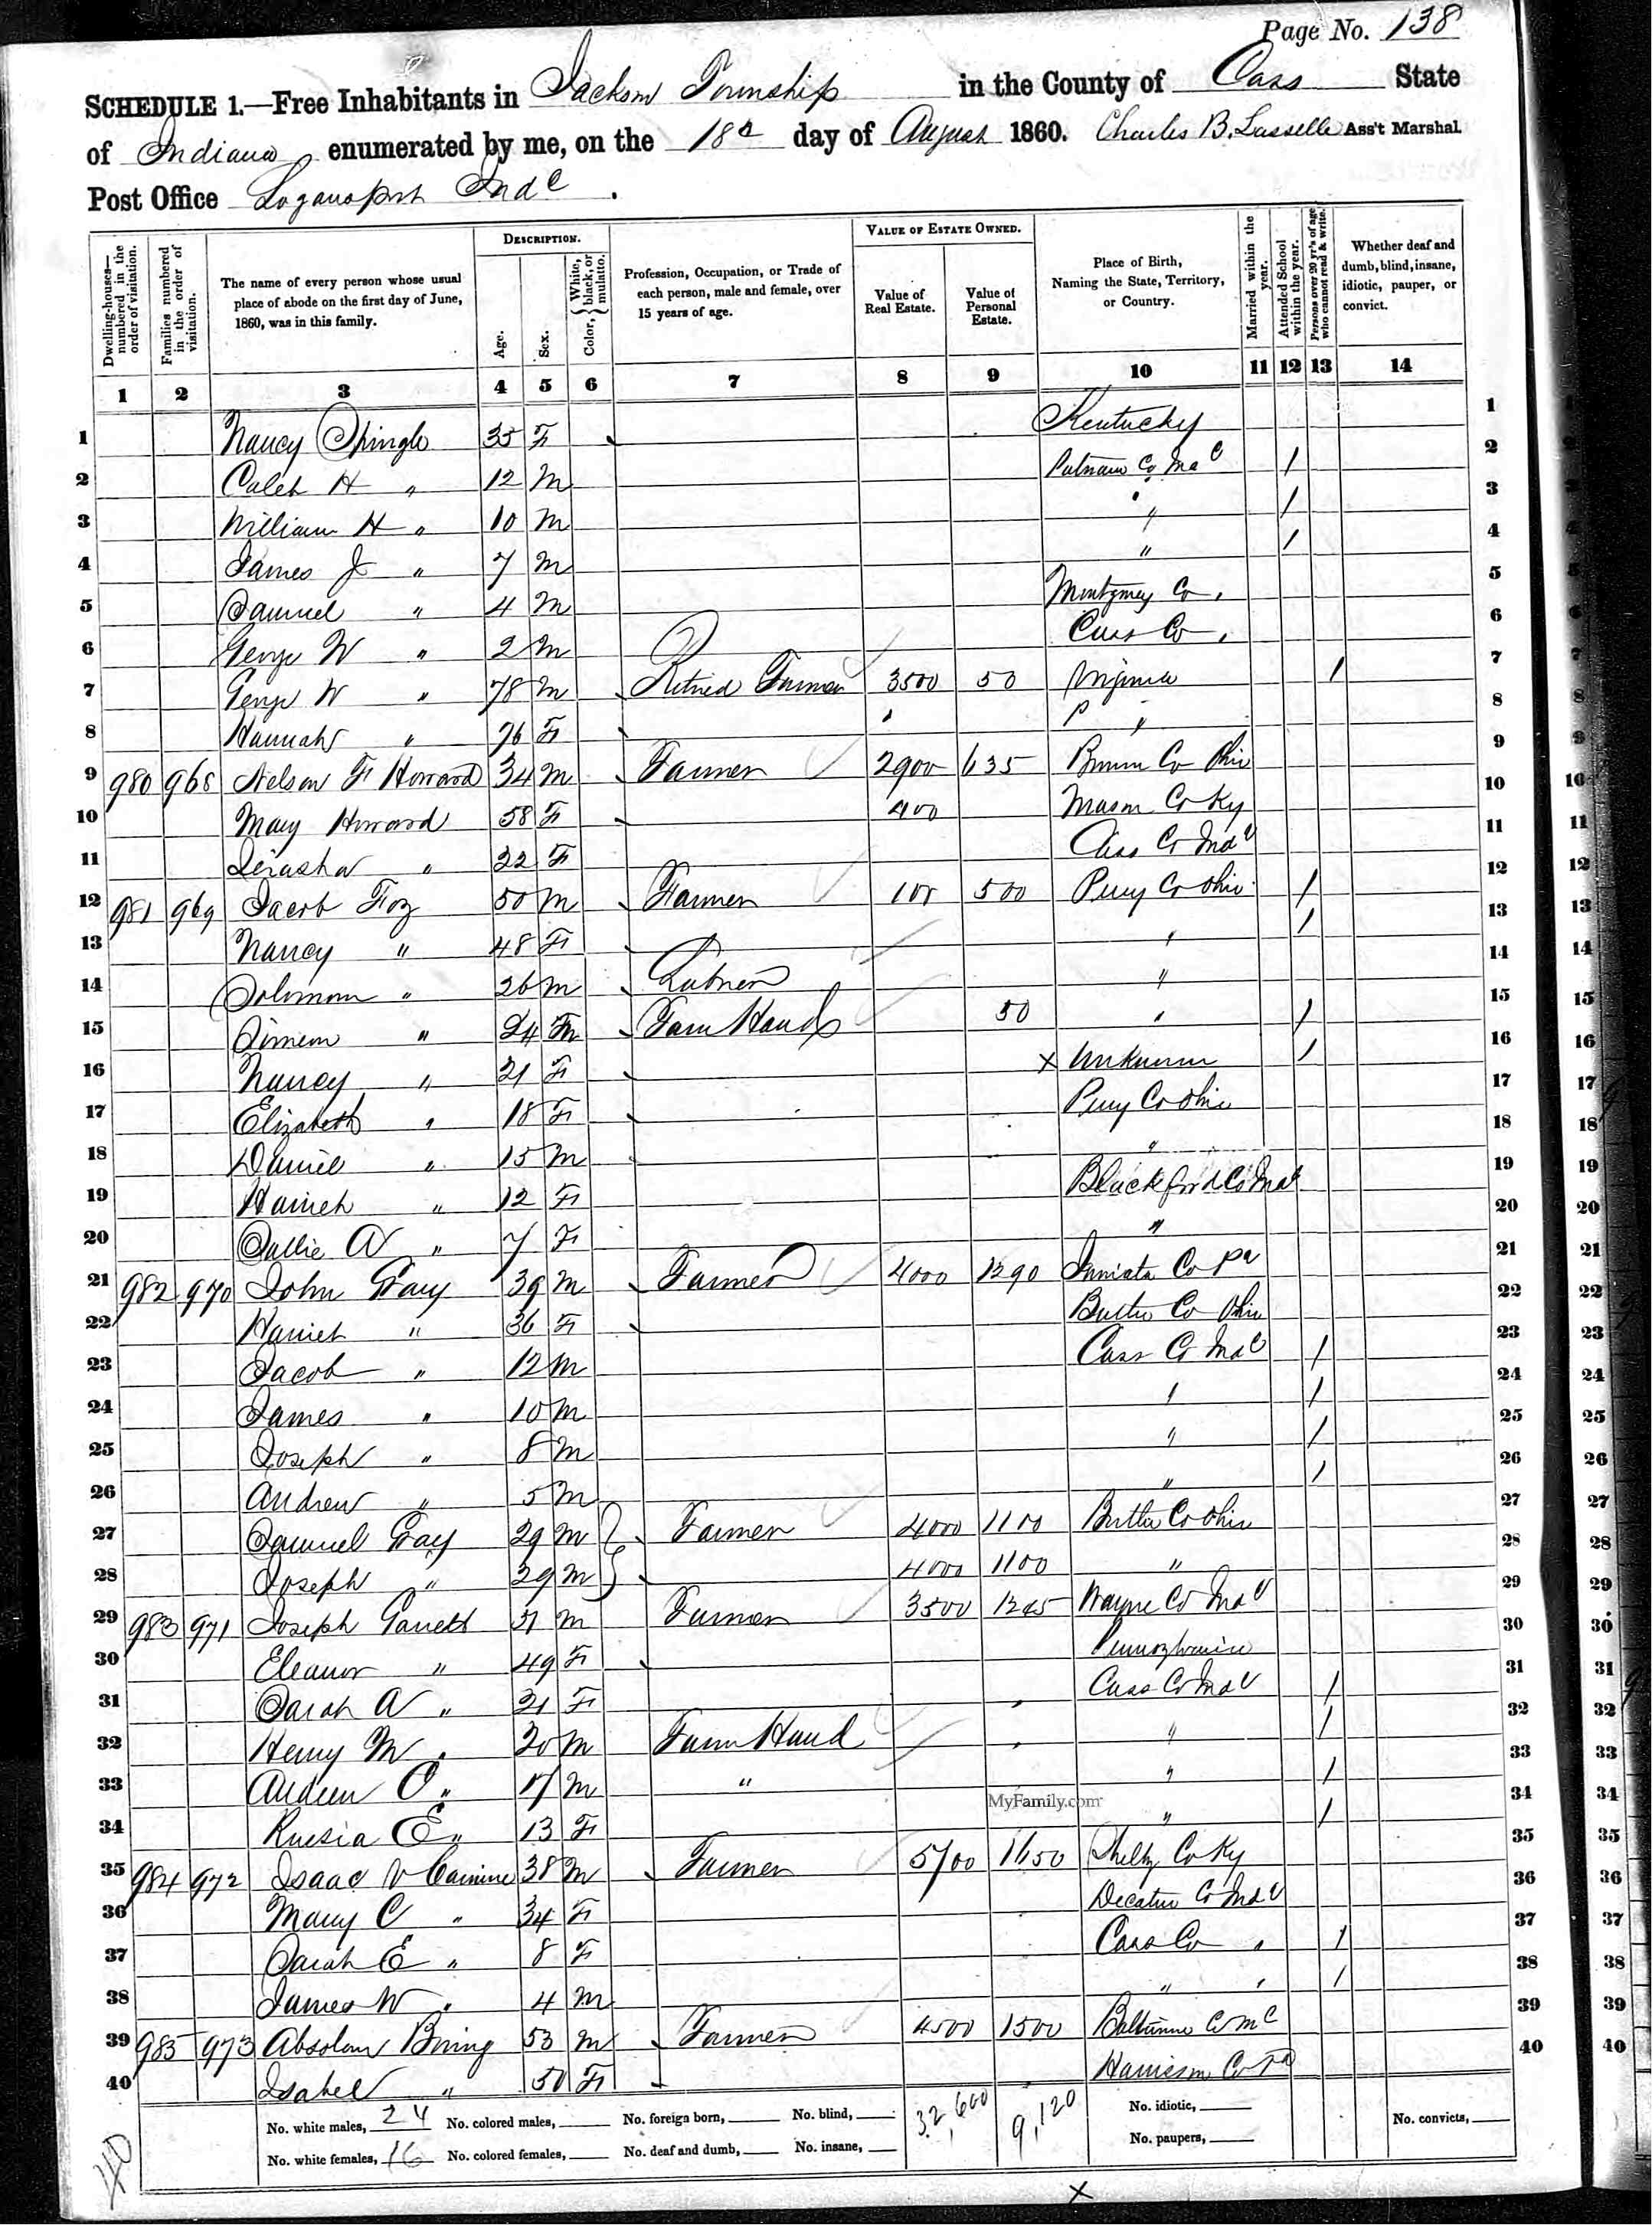 Page No. 138
SCHEDULE 1.—Free Inhabitants in Jackson Township in the County of Cass State
of Indiana enumerated by me, on the 18th day of August 1860. Charles B. Lasselle Ass't Marshal.
Post Office Logansport Inda.
Dwelling-houses—numbered in the order of visitation.
Families numbered in the order of visitation.
The name of every person whose usual place of abode on the first day of June, 1860, was in this family.
DESCRIPTION.
Age.
Sex.
Color, { White, black, or mulatto.
Profession, Occupation, or Trade of each person, male and female, over 15 years of age.
VALUE OF ESTATE OWNED.
Value of Real Estate.
Value of Personal Estate.
Place of Birth, Naming the State, Territory, or Country.
Married within the year.
Attended School within the year.
Persons over 20 yr's of age who cannot read & write.
Whether deaf and dumb, blind, insane, idiotic, pauper, or convict.
1 2 3 4 5 6 7 8 9 10 11 12 13 14
1 Nancy 35 F Kentucky 1
2 Caleb H " 12 M Putnam Co Inda / 2
3 William H " 10 M " / 3
4 James J " 7 M " / 4
5 Samuel " 4 M Montgomery Co " 5
6 George W " 2 M Cass Co " 6
7 George W " 78 M Retired Farmer 3500 50 Virginia / 7
8 Hannah " 76 F " 8
9 980 968 Nelson F Howard 34 M Farmer 2900 635 Brown Co Ohio 9
10 Mary Howard 58 F 400 Mason Co Ky 10
11 " 22 F Cass Co Inda 11
12 981 969 Jacob Foz 50 M Farmer 100 500 Perry Co Ohio / 12
13 Nancy " 48 F " / 13
14 Solomon " 26 M Laborer " 14
15 Simeon " 24 M Farm Hand 50 " / 15
16 Nancy " 21 F x Unknown / 16
17 Elizabeth " 18 F Perry Co Ohio 17
18 Daniel " 15 M " 18
19 Harriet " 12 F Blackford Co Inda 19
20 Sallie A " 7 F " 20
21 982 970 John Gray 39 M Farmer 4000 1290 Juniata Co Pa 21
22 Harriet " 36 F Butler Co Ohio 22
23 Jacob " 12 M Cass Co Inda / 23
24 James " 10 M " / 24
25 Joseph " 8 M " / 25
26 Andrew " 5 M " / 26
27 Samuel Gray 29 M Farmer 4000 1100 Butler Co Ohio 27
28 Joseph " 29 M 4000 1100 " 28
29 983 971 Joseph Garrett M Farmer 3500 1245 Wayne Co Inda 29
30 Eleanor " 49 F Pennsylvania 30
31 Sarah A " 21 F Cass Co Inda / 31
32 Henry M " 20 M Farm Hand " / 32
33 Andrew C " 17 M " " / 33
34 E " 13 F " / 34
35 984 972 Isaac V Carmine 38 M Farmer 5700 1150 Shelby Co Ky 35
36 Mary C " 34 F Decatur Co Inda 36
37 Sarah E " 8 F Cass Co " / 37
38 James W " 4 M " " / 38
39 985 973 Absolom 53 M Farmer 4500 1500 Baltimore Co 39
40 Isabel " 50 F Harrison Co 40
MyFamily.com
No. white males, 24 No. colored males, No. foreign born, No. blind, 32,600 9,120 No. idiotic, No. convicts,
No. white females, 16 No. colored females, No. deaf and dumb, No. insane, No. paupers,
40
x